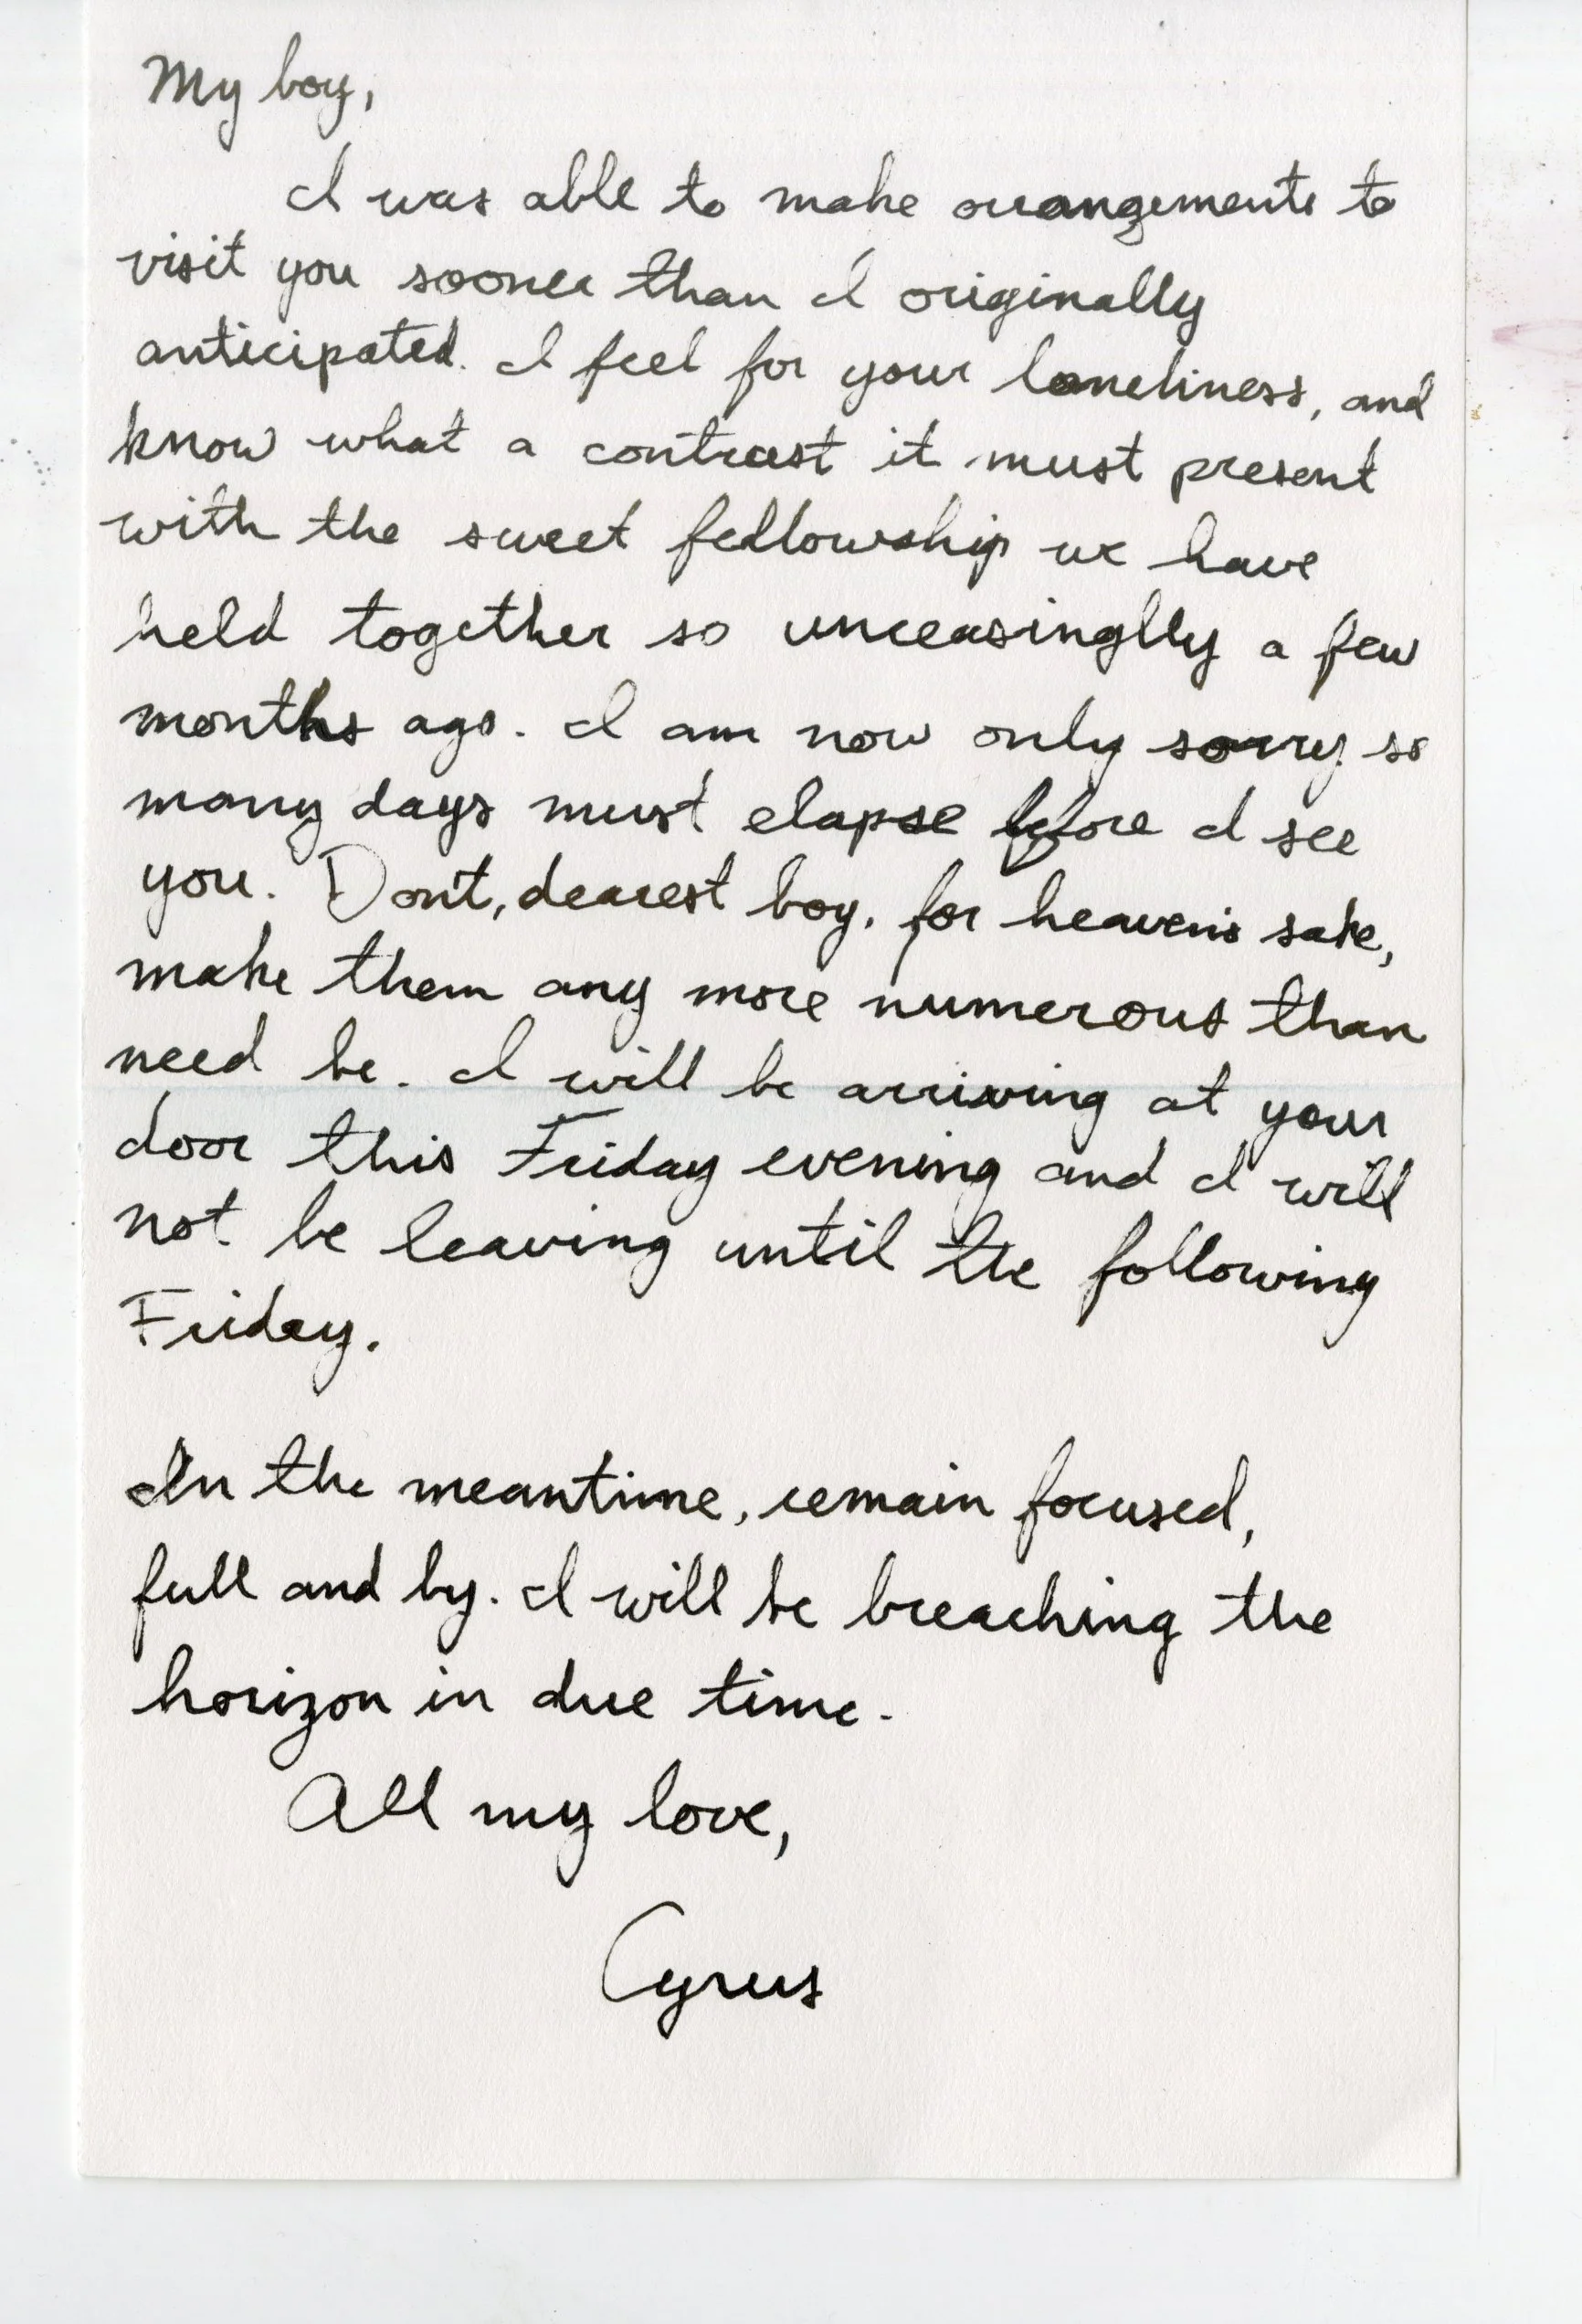 My boy,
I was able to make arrangements to
visit you sooner than I originally
anticipated. I feel for your loneliness, and
know what a contrast it must present
with the sweet fellowship we have
held together so unceasinglly a few
months ago. I am now only sorry so
many days must elapse before I see
you. Don't, dearest boy, for heaven's sake,
make them any more numerous than
need be. I will be arriving at your
door this Friday evening and I will
not be leaving until the following
Friday.
In the meantime, remain focused,
full and by. I will be breaching the
horizon in due time.
All my love,
Cyrus